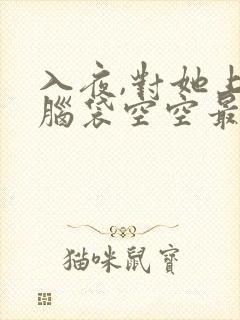 入夜,對她上
腦袋空空最
猫咪鼠寶